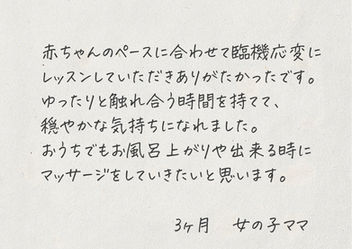 赤ちゃんのペースに合わせて臨機応変に
レッスンしていただきありがたかったです。
ゆったりと触れ合う時間を持てて、
穏やかな気持ちになれました。
おうちでもお風呂上がりや出来る時に
マッサージをしていきたいと思います。
3ヶ月 女の子ママ